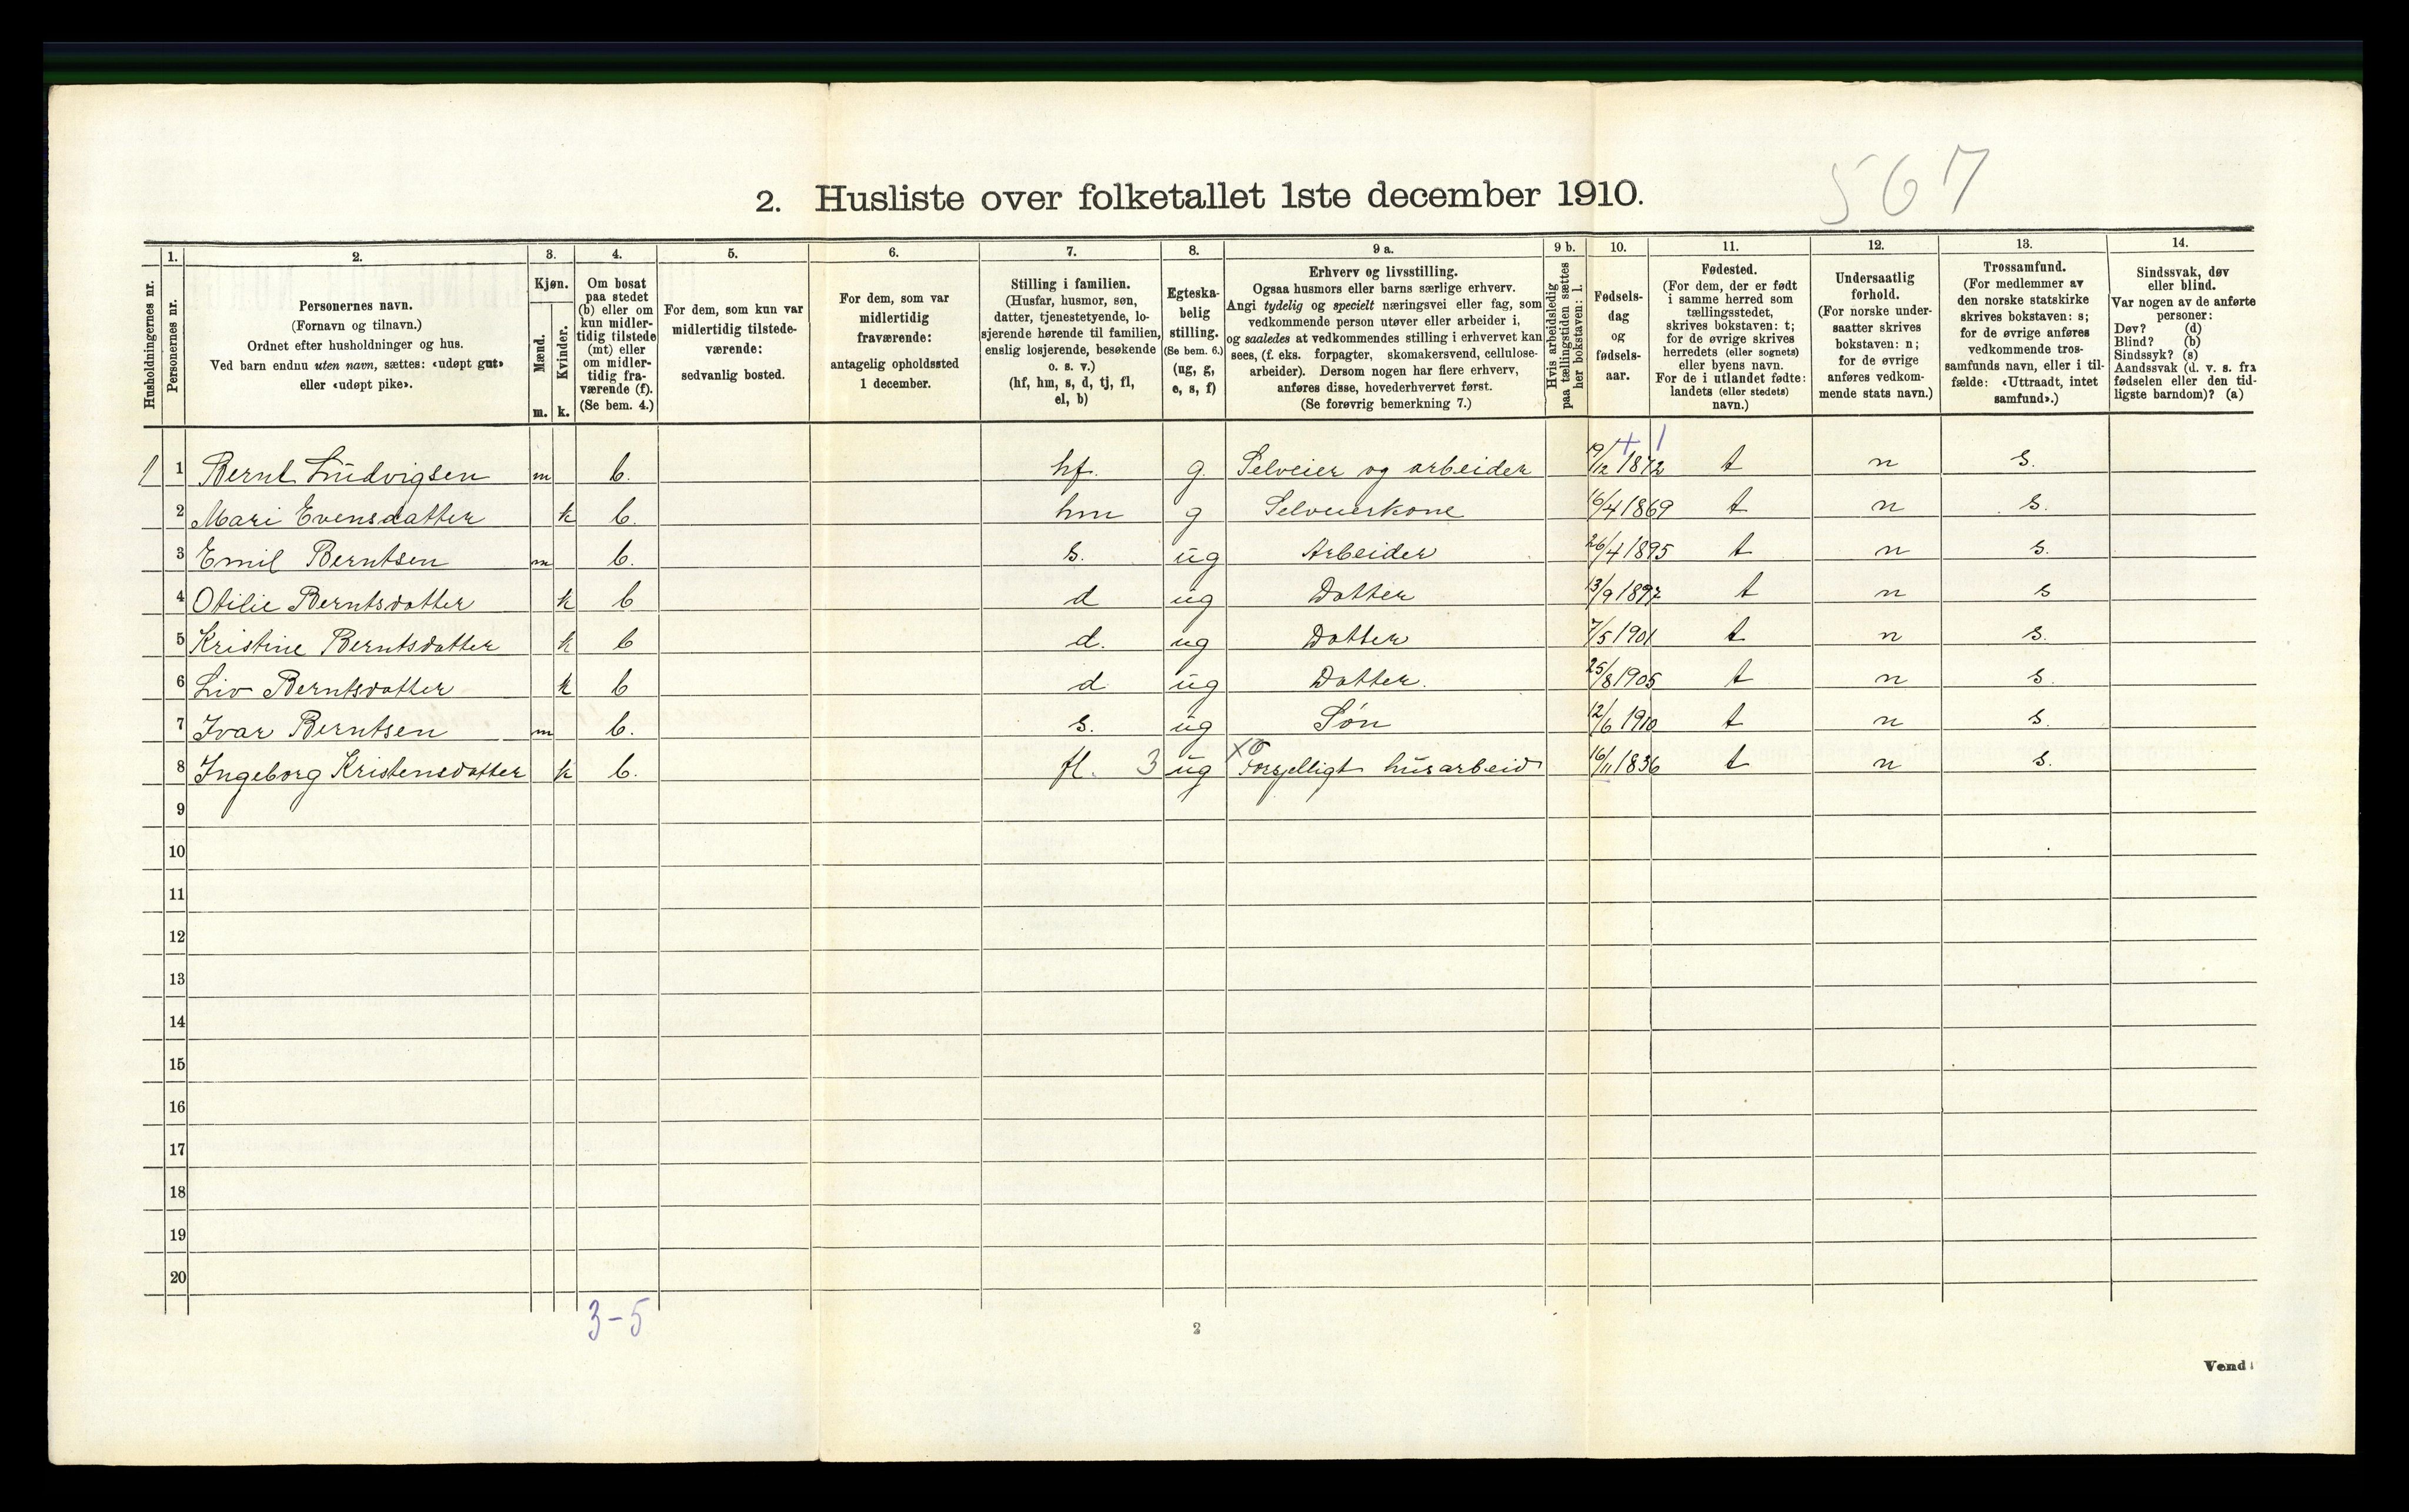 567
2. Husliste over folketallet 1ste december 1910.
Husholdningernes nr.
1.
Personernes nr.
2.
Personernes navn.
(Fornavn og tilnavn.)
Ordnet efter husholdninger og hus.
Ved barn endnu uten navn, sættes: «udøpt gut»
eller «udøpt pike».
3.
Kjøn.
Mænd.
Kvinder.
m. k.
4.
Om bosat
paa stedet
(b) eller om
kun midler-
tidig tilstede
(mt) eller
om midler-
tidig fra-
værende (f).
(Se bem. 4.)
5.
For dem, som kun var
midlertidig tilstede-
værende:
sedvanlig bosted.
6.
For dem, som var
midlertidig
fraværende:
antagelig opholdssted
1 december.
7.
Stilling i familien.
(Husfar, husmor, søn,
datter, tjenestetyende, lo-
sjerende hørende til familien,
enslig losjerende, besøkende
o. s. v.)
(hf, hm, s, d, tj, fl,
el, b)
8.
Egteska-
belig
stilling.
(Se bem. 6.)
(ug, g,
e, s, f)
9 a.
Erhverv og livsstilling.
Ogsaa husmors eller barns særlige erhverv.
Angi tydelig og specielt næringsvei eller fag, som
vedkommende person utøver eller arbeider i,
og saaledes at vedkommendes stilling i erhvervet kan
sees, (f. eks. forpagter, skomakersvend, cellulose-
arbeider). Dersom nogen har flere erhverv,
anføres disse, hovederhvervet først.
(Se forøvrig bemerkning 7.)
9 b.
Hvis arbeidsledig
paa tællingstiden sættes
her bokstaven: l.
10.
Fødsels-
dag
og
fødsels-
aar.
11.
Fødested.
(For dem, der er født
i samme herred som
tællingsstedet,
skrives bokstaven: t;
for de øvrige skrives
herredets (eller sognets)
eller byens navn.
For de i utlandet fødte:
landets (eller stedets)
navn.)
12.
Undersaatlig
forhold.
(For norske under-
saatter skrives
bokstaven: n;
for de øvrige
anføres vedkom-
mende stats navn.)
13.
Trossamfund.
(For medlemmer av
den norske statskirke
skrives bokstaven: s;
for de øvrige anføres
vedkommende tros-
samfunds navn, eller i til-
fælde: «Uttraadt, intet
samfund».)
14.
Sindssvak, døv
eller blind.
Var nogen av de anførte
personer:
Døv? (d)
Blind? (b)
Sindssyk? (s)
Aandssvak (d. v. s. fra
fødselen eller den tid-
ligste barndom)? (a)
+ 1
1 1 Bernt Ludvigsen m b. hf. g. Selveier og arbeider 19/12 1872 t n s.
2 Mari Evensdatter k b. hm g Selveierkone 16/4 1869 t n s.
3 Emil Berntsen m b. s. ug Arbeider 26/4 1895 t n s.
4 Otilie Berntsdatter k b d ug Datter 13/9 1897 t n s
5 Kristine Berntsdatter k b d. ug Datter 7/5 1901 t n s.
6 Liv Berntsdatter k b d ug Datter. 25/8 1905 t n s.
7 Ivar Berntsen m b. s. ug Søn 12/6 1910 t n s.
x0
8 Ingeborg Kristensdatter k b. fl. 3 ug Forsjelligt husarbeid 16/11 1836 t n s.
9
10
11
12
13
14
15
16
17
18
19
20
3-5
2
Vend!